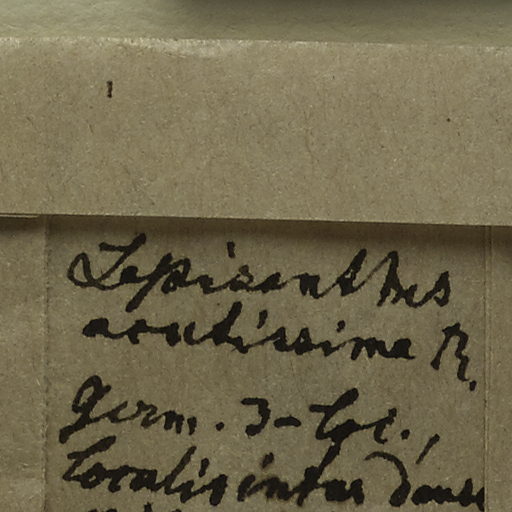 Lepisanthes
acutissima R.
Germ. 3-loc.,
localis intus